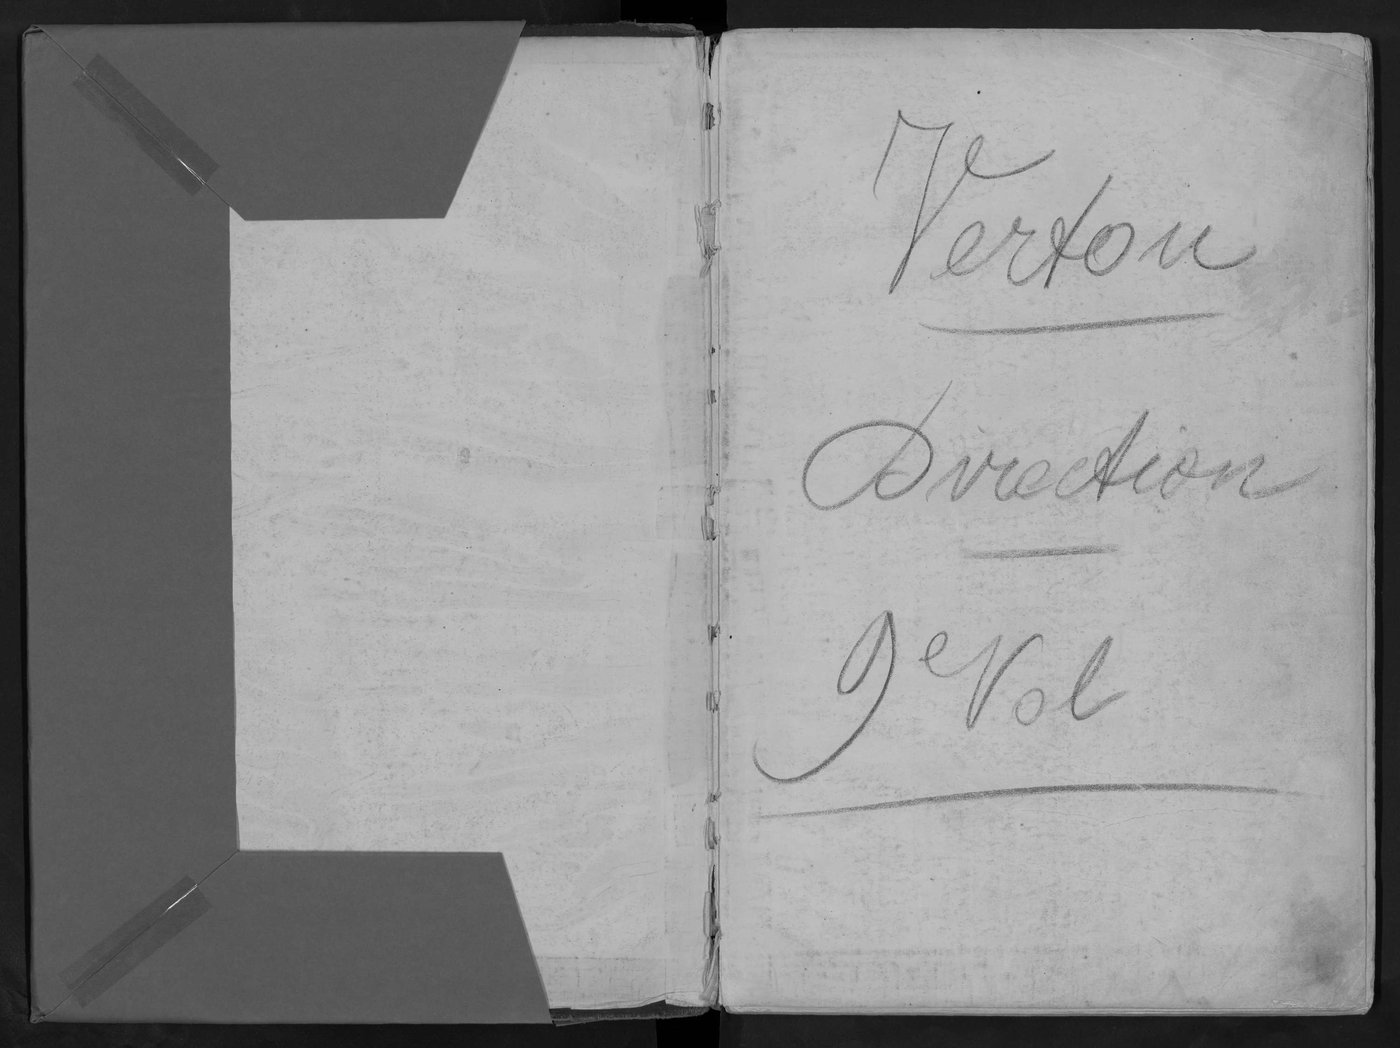 Verton
Direction
9e Vol